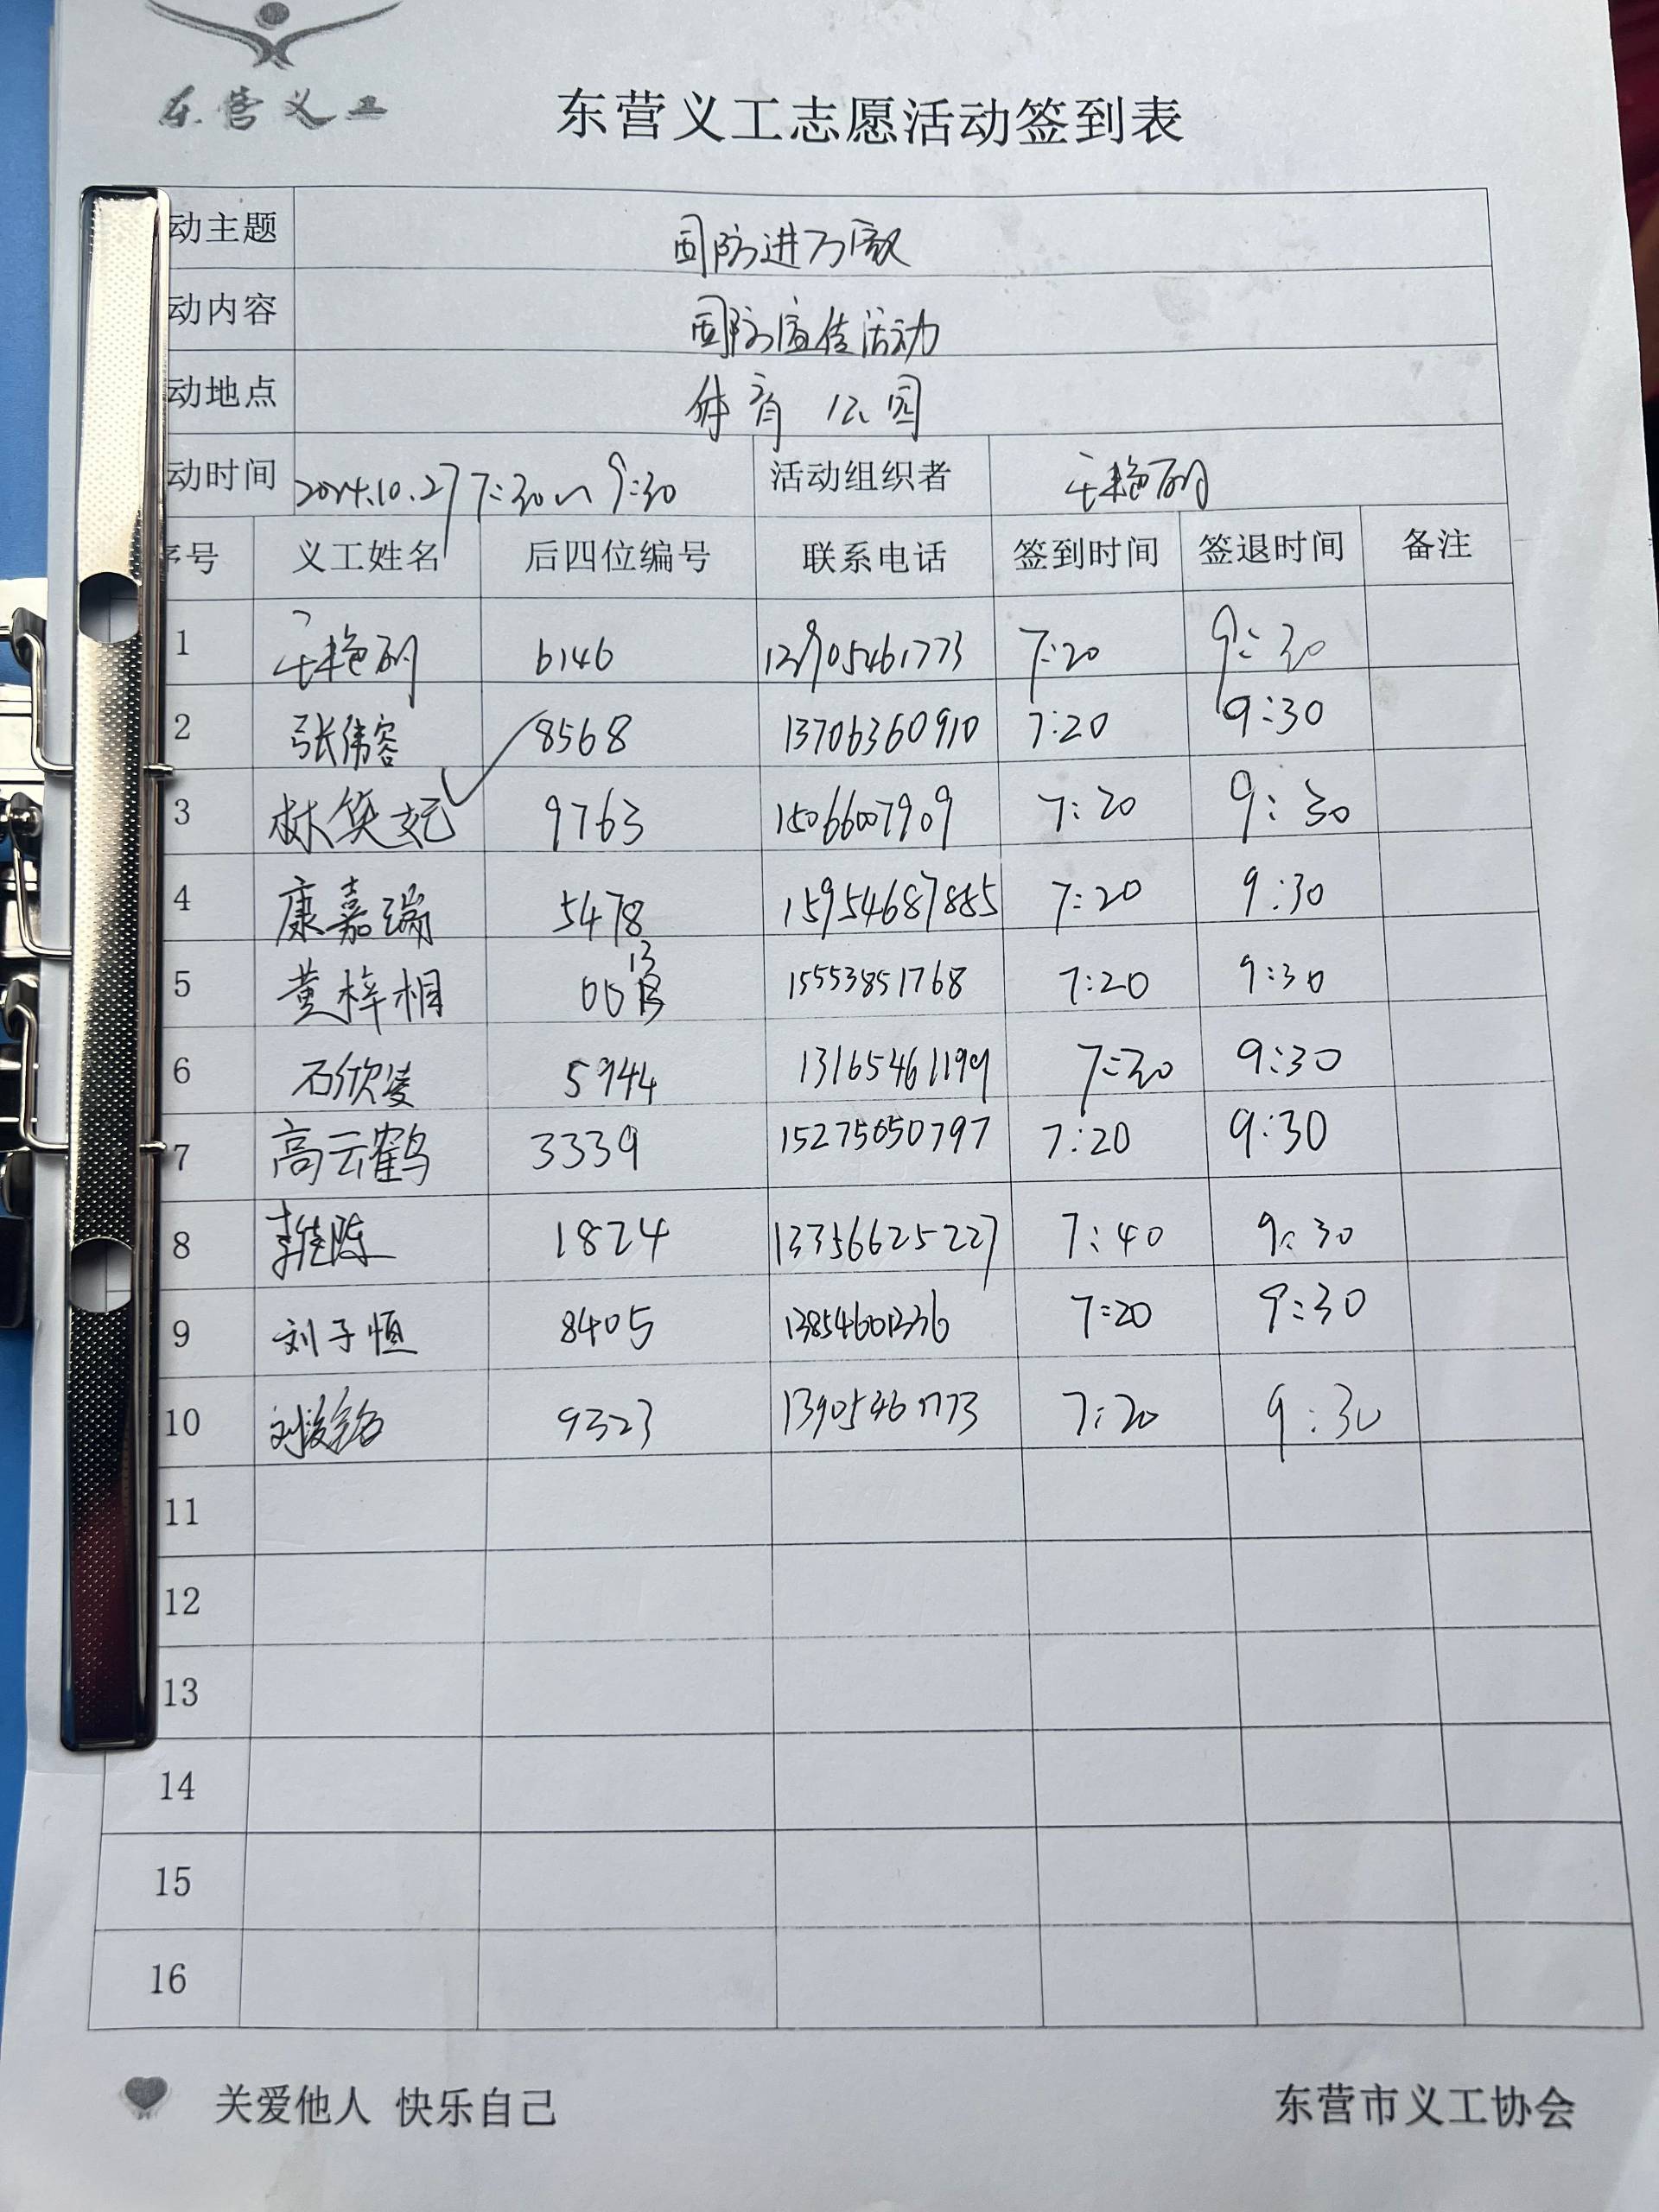 东营义工
东营义工志愿活动签到表
动主题 国防进万家
动内容 国防宣传活动
动地点 体育公园
动时间 2024.10.27 7:30~9:30 活动组织者
序号 义工姓名 后四位编号 联系电话 签到时间 签退时间 备注
1 6146 7:20 9:30
2 张伟容 8568 13706360910 7:20 9:30
3 林笑妃 9763 15066007909 7:20 9:30
4 康嘉瑞 5478 15954687885 7:20 9:30
5 黄梓桐 0013 15553851768 7:20 9:30
6 石欣凌 5944 13165461199 7:30 9:30
7 高云鹤 3339 15275650797 7:20 9:30
8 1824 13356625227 7:40 9:30
9 刘子恒 8405 13854601336 7:20 9:30
10 9323 13905461773 7:20 9:30
11
12
13
14
15
16
关爱他人 快乐自己 东营市义工协会